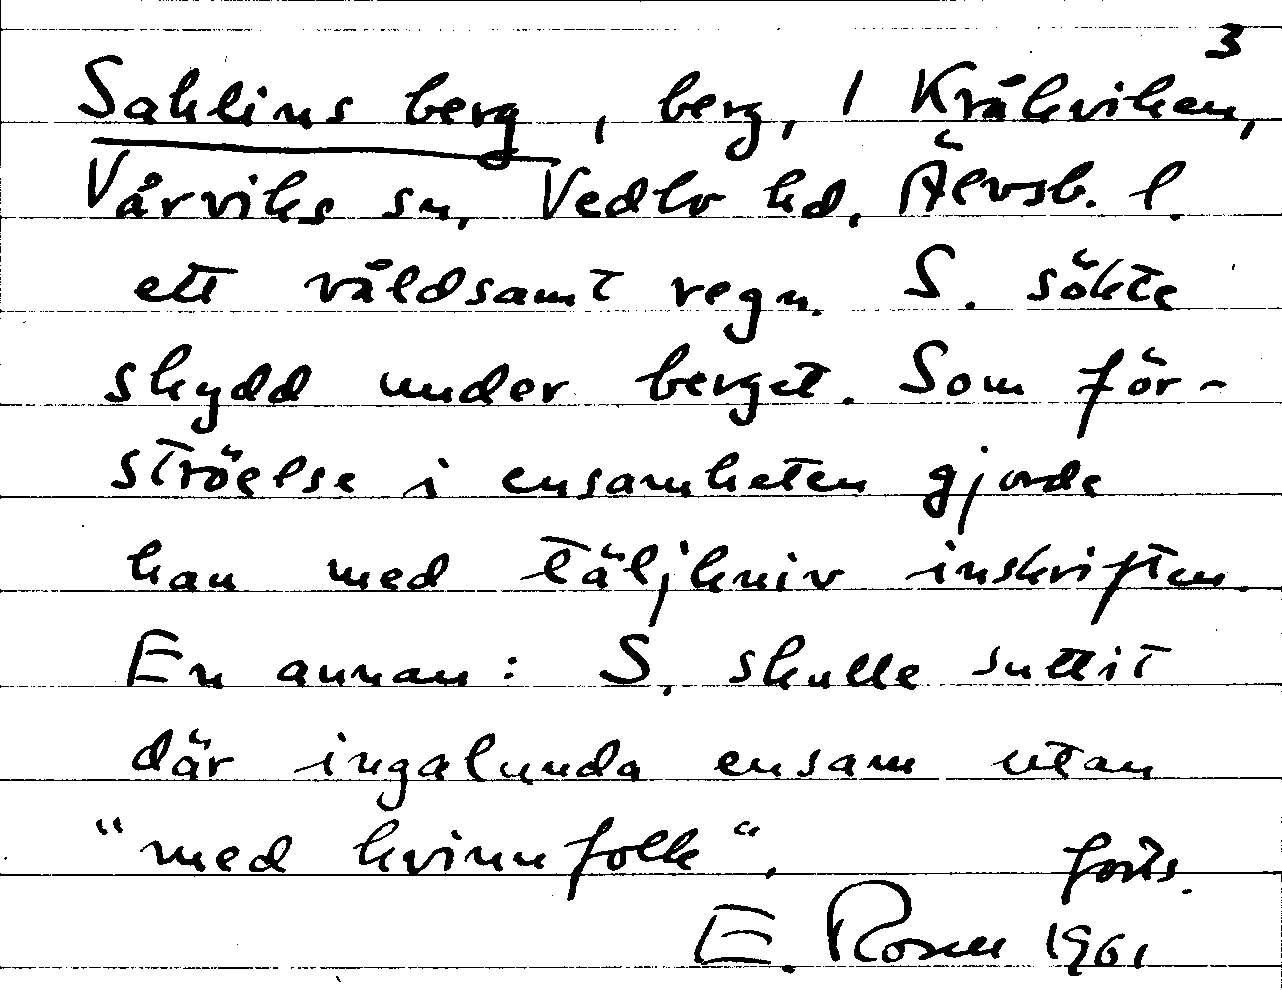 3
Sahlins berg, berg, 1 Kråkviken,
Vårviks sn, Vedbo hd, Älvsb. l.
ett våldsamt regn. S. sökte
skydd under berget. Som för-
ströelse i ensamheten gjorde
han med täljkniv inskriften.
En annan: S. skulle suttit
där ingalunda ensam utan
"med kvinnfolk". forts.
E. Rosen 1961